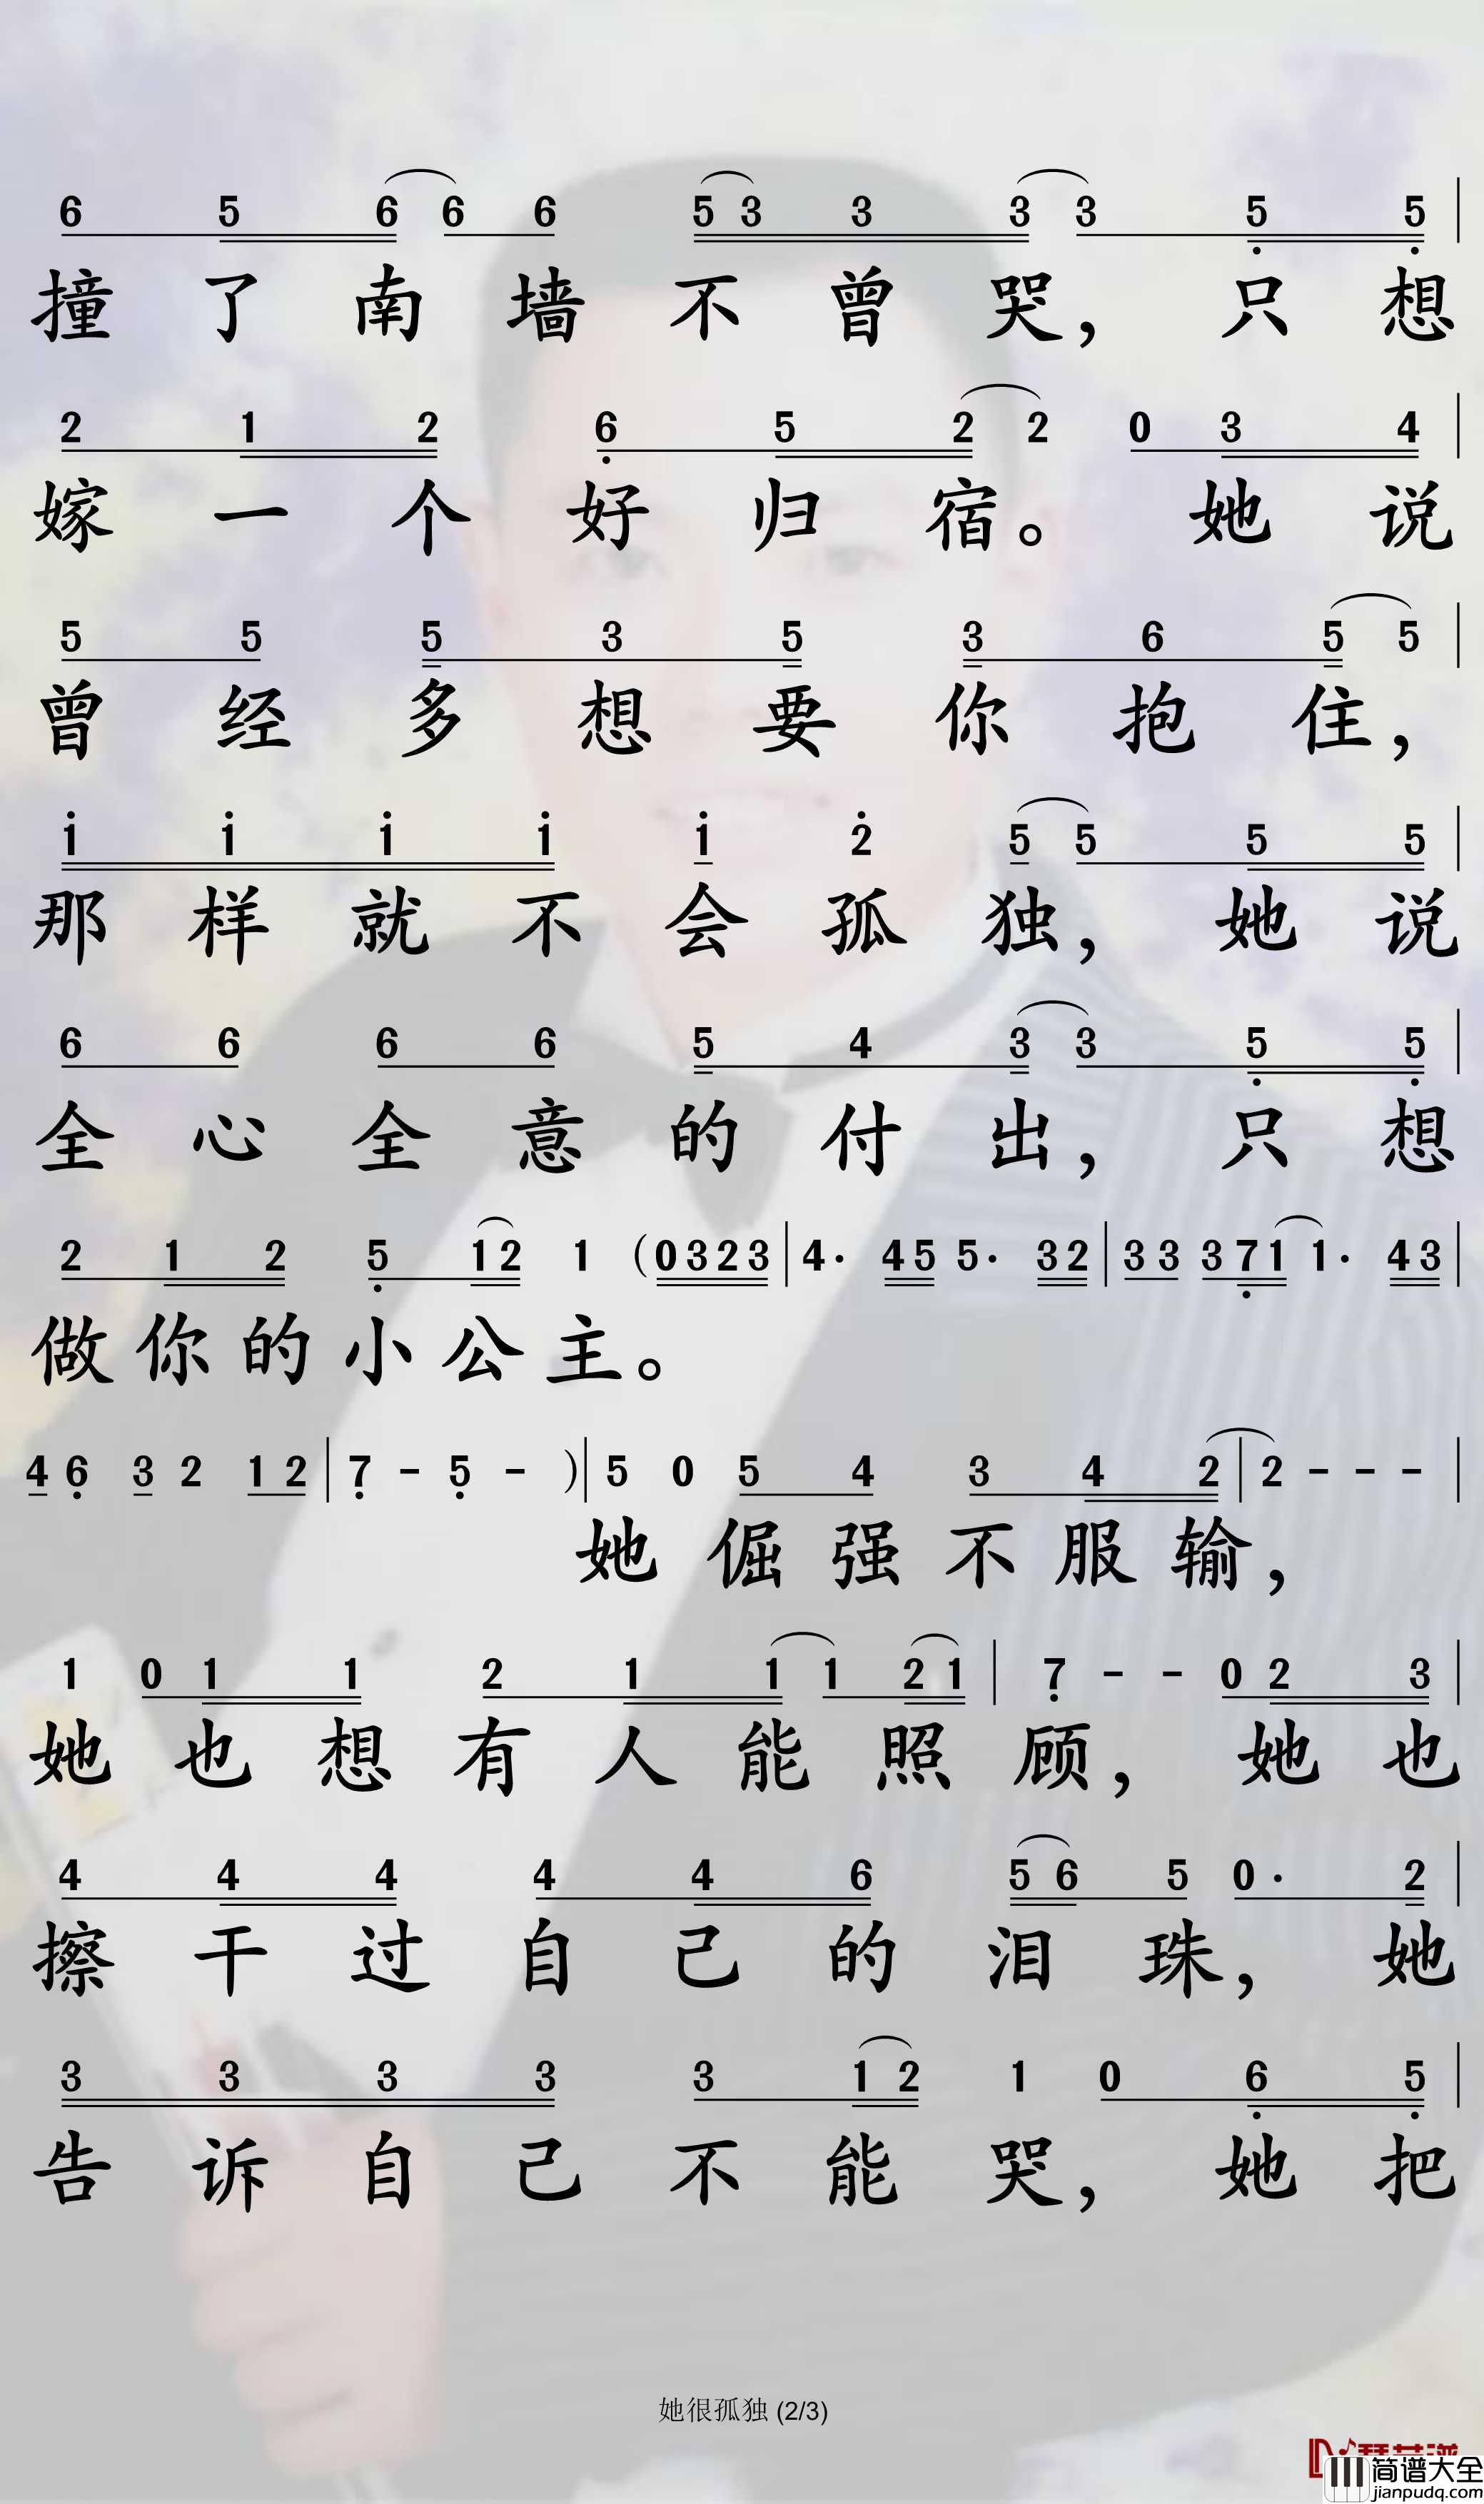 6 5 6 6 6 5 3 3 3 3 5 5
撞了南墙不曾哭，只想
2 1 2 6 5 2 2 0 3 4
嫁一个好归宿。她说
5 5 5 3 5 3 6 5 5
曾经多想要你抱住，
1 1 1 1 1 2 5 5 5 5
那样就不会孤独，她说
6 6 6 6 5 4 3 3 5 5
全心全意的付出，只想
2 1 2 5 1 2 1 (0 3 2 3 | 4· 4 5 5· 3 2 | 3 3 3 7 1 1· 4 3 |
做你的小公主。
4 6 3 2 1 2 | 7 - 5 - )| 5 0 5 4 3 4 2 | 2 - - - |
她倔强不服输，
1 0 1 1 2 1 1 1 2 1 | 7 - - 0 2 3 |
她也想有人能照顾，她也
4 4 4 4 4 6 5 6 5 0· 2 |
擦干过自己的泪珠，她
3 3 3 3 3 1 2 1 0 6 5 |
告诉自己不能哭，她把
她很孤独 (2/3)
简谱大全
jianpudq.com